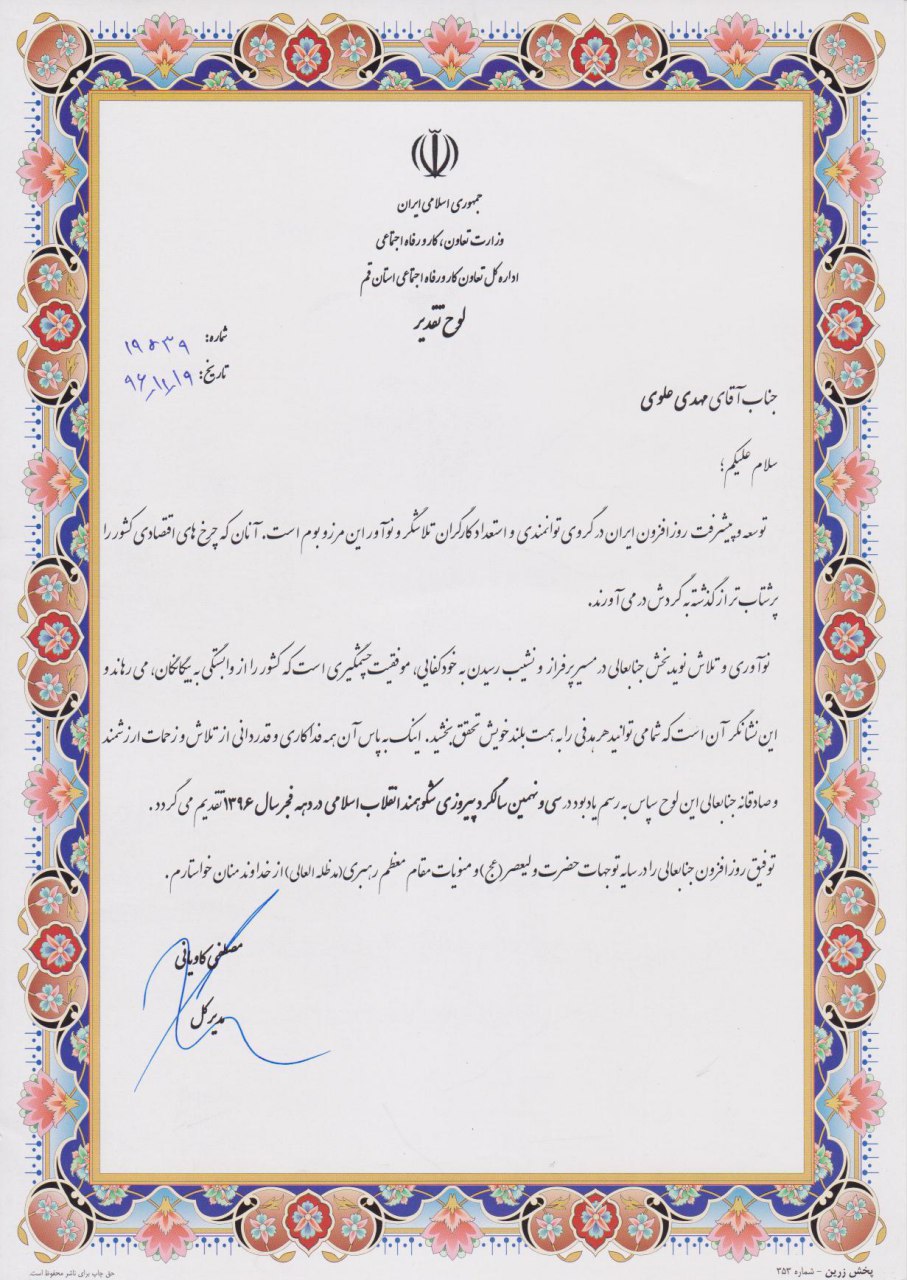 جمهوری اسلامی ایران
وزارت تعاون، کار و رفاه اجتماعی
اداره کل تعاون کار و رفاه اجتماعی استان قم
لوح تقدیر
شماره: ۱۹۵۳۹
تاریخ: ۹۶/۱۱/۱۹
جناب آقای مهدی علوی
سلام علیکم؛
توسعه و پیشرفت روز افزون ایران در گروی توانمندی و استعداد کارگران تلاشگر و نوآور این مرز و بوم است. آنان که چرخ های اقتصادی کشور را
پرشتاب تر از گذشته به گردش در می آورند.
نوآوری و تلاش نوید بخش جنابعالی در مسیر پر فراز و نشیب رسیدن به خودکفایی، موفقیت چشمگیری است که کشور را از وابستگی به بیگانگان، می رهاند و
این نشانگر آن است که شما می توانید هر هدفی را به همت بلند خویش تحقق بخشید. اینک به پاس آن همه فداکاری و قدردانی از تلاش و زحمات ارزشمند
و صادقانه جنابعالی این لوح سپاس به رسم یادبود در سی و نهمین سالگرد پیروزی شکوهمند انقلاب اسلامی در دهه فجر سال ۱۳۹۶ تقدیم می گردد.
توفیق روز افزون جنابعالی را در سایه توجهات حضرت ولیعصر (عج) و منویات مقام معظم رهبری (مدظله العالی) از خداوند منان خواستارم.
مصطفی کاویانی
مدیر کل
پخش زرین - شماره ۳۵۳
حق چاپ برای ناشر محفوظ است.